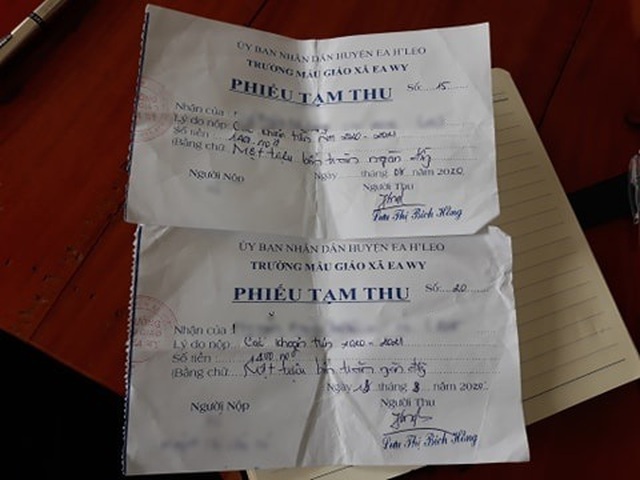 ỦY BAN NHÂN DÂN HUYỆN EA H'LEO
TRƯỜNG MẪU GIÁO XÃ EA WY
PHIẾU TẠM THU
Số:....15.....
Nhận của
Lý do nộp: Các khoản tiền 2020 - 2021
Số tiền
(Bằng chữ: Một triệu bốn trăm ngàn đồng
Ngày......tháng 08 .năm 2020
Người Nộp
Người Thu
Lưu Thị Bích Hồng
ỦY BAN NHÂN DÂN HUYỆN EA H'LEO
TRƯỜNG MẪU GIÁO XÃ EA WY
PHIẾU TẠM THU
Số:....20.......
Nhận của
Lý do nộp: Các khoản tiền 2020 - 2021
Số tiền 1400.000đ
(Bằng chữ: Một triệu bốn trăm ngàn đồng
Ngày 18 tháng 8 năm 2020
Người Nộp
Người Thu
Lưu Thị Bích Hồng